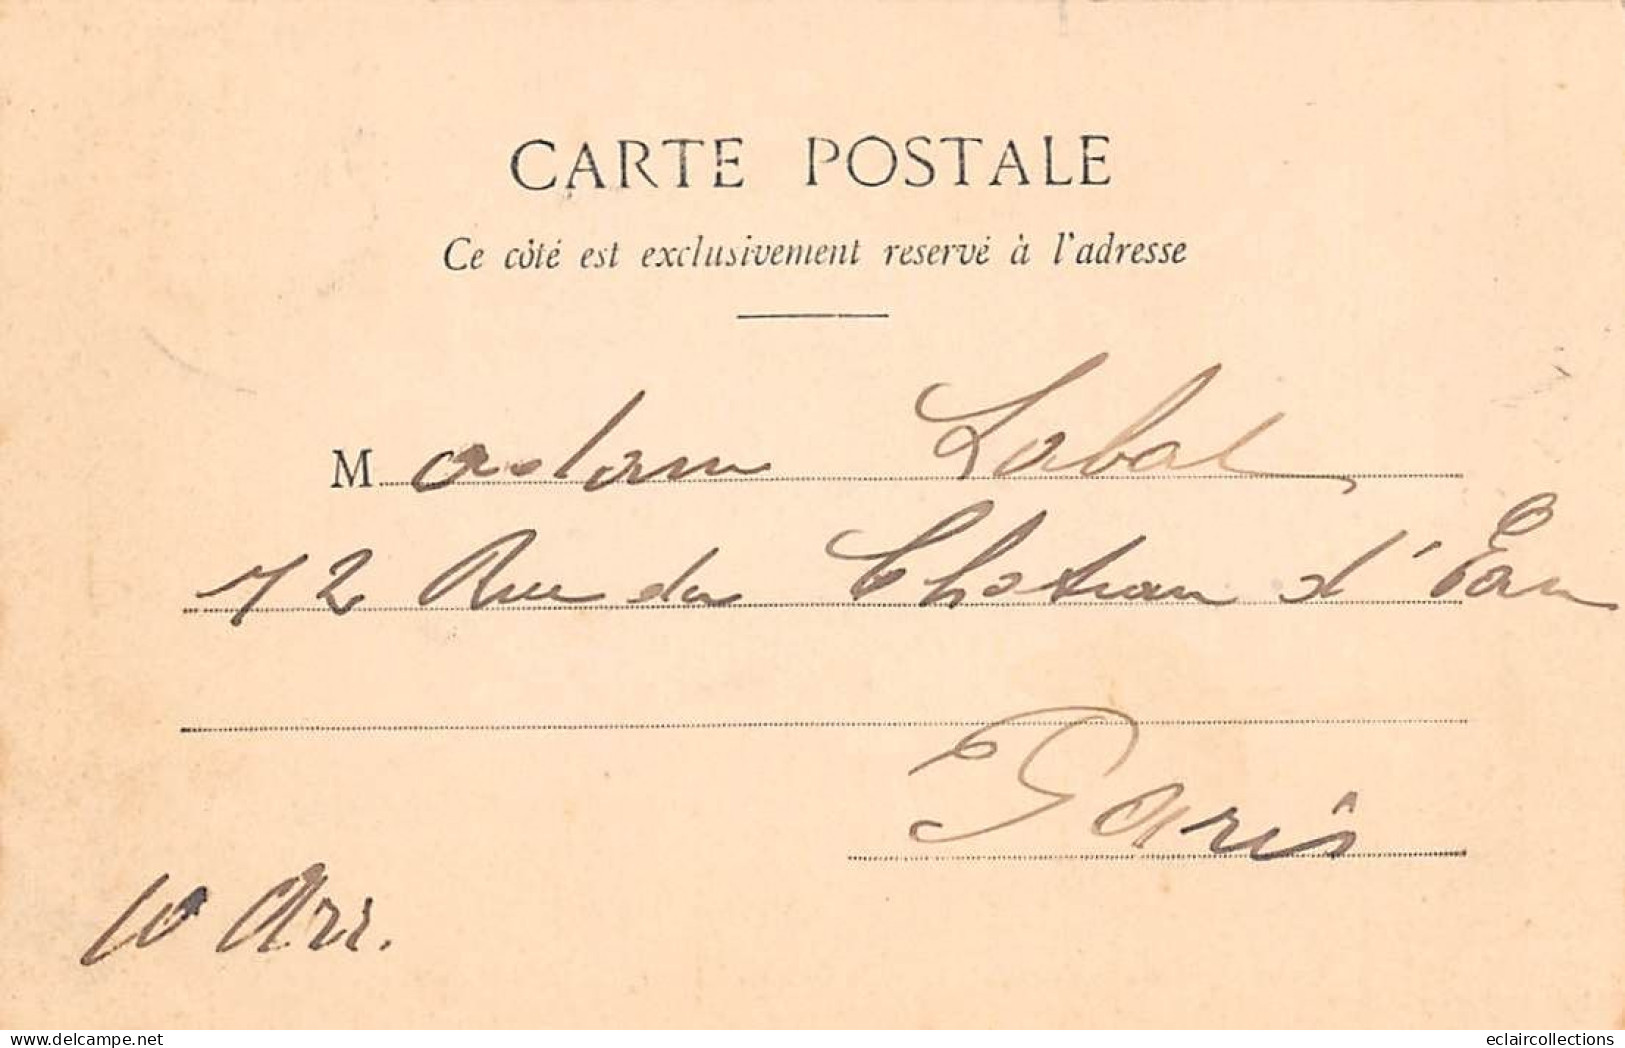 CARTE POSTALE
Ce côté est exclusivement reservé à l'adresse
Madam Labat
72 Rue du Chateau d'Eau
Paris
10 Arr.
www.delcampe.net
eclaircollections